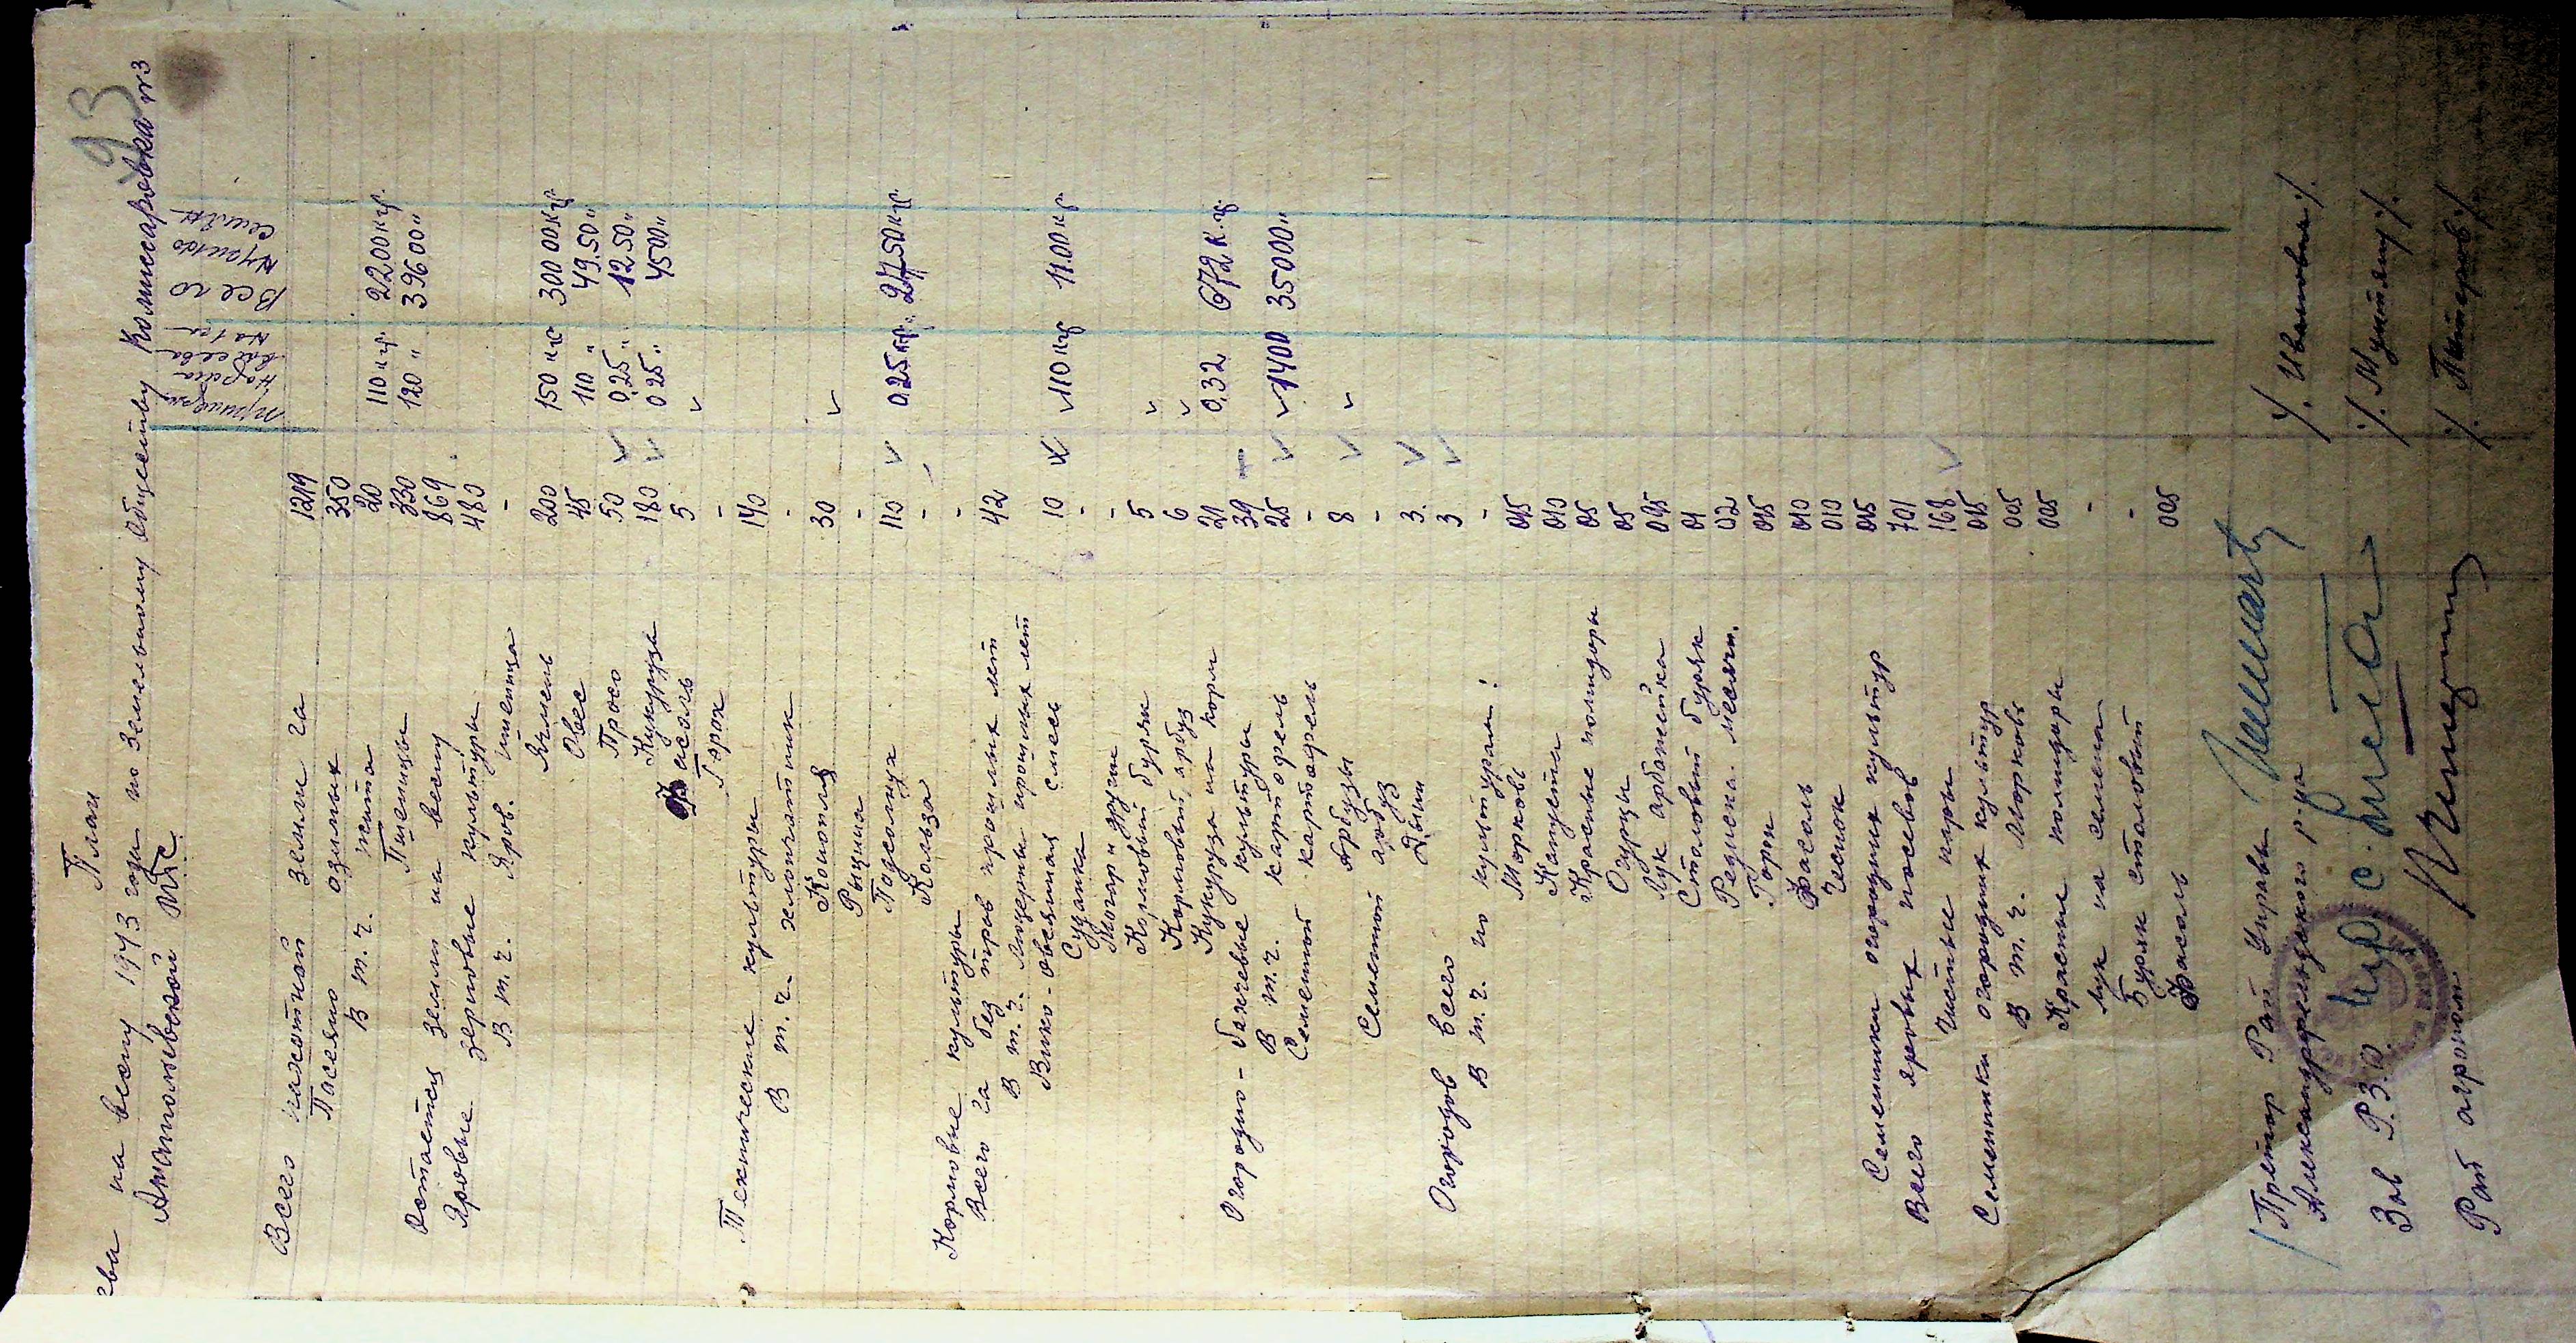 93
План
ева на весну 1943 года по Земельному Обществу Комиссаровка №3
Анатольевской МТС
Примерн. Норма высева на га
Всего нужно семян
Всего пахотной земли га 1219
Посеяно озимых 350
В т.ч. жита 20 110 кгр 2200 кгр.
Пшеницы 330 120 " 39600 "
Остается земли на весну 869
Яровые зерновые культуры 480
В т.ч. Яров. пшеница -
Ячмень 200 150 кг 30000 кгр
Овес 45 110 " 49.50 "
Просо 50 0,25 " 12.50 "
Кукуруза 180 0 25 " 4500 "
Фасоль 5
Горох -
Технические культуры 140
В т.ч. хлопчатник -
Конопля 30
Рыцина -
Подсолнух 110 0,25 кгр. 27.50 кгр.
Кольза -
Кормовые культуры -
Всего га без трав прошлых лет 42
В т.ч. Люцерны прошлых лет
Вико-овсянная смесь 10 110 кгр 11.00 кгр.
Суданка -
Могар и другие -
Кормовый буряк 5
Кормовый арбуз 6
Кукуруза на корм 21 0,32 672 к.гр.
Огородно-бахчевые культуры 39
В т.ч. картофель 25 1400 35000 "
Семенной картофель -
Арбузы 8
Семенной арбуз -
Дыни 3.
Огородов всего 3
В т.ч. по культурам: -
Морковь 015
Капуста 010
Красные помидоры 05
Огурцы 05
Лук арбажейка 045
Столовый буряк 01
Редиска. Месячн. 02
Горох 015
Фасоль 010
Чеснок 010
Семенники огородних культур 015
Всего яровых посевов 701
Чистые пары 168
Семенники огородних культур 015
В т.ч. Морковь 005
Красные помидоры 005
Лук на семена -
Буряк столовый -
Фасоль 005
Претор Рай Управы
Александрфельдского р-на /. Ивановый /.
Зав Р.З.О. /. Мунтяну /.
Рай агроном /. Питеров /.